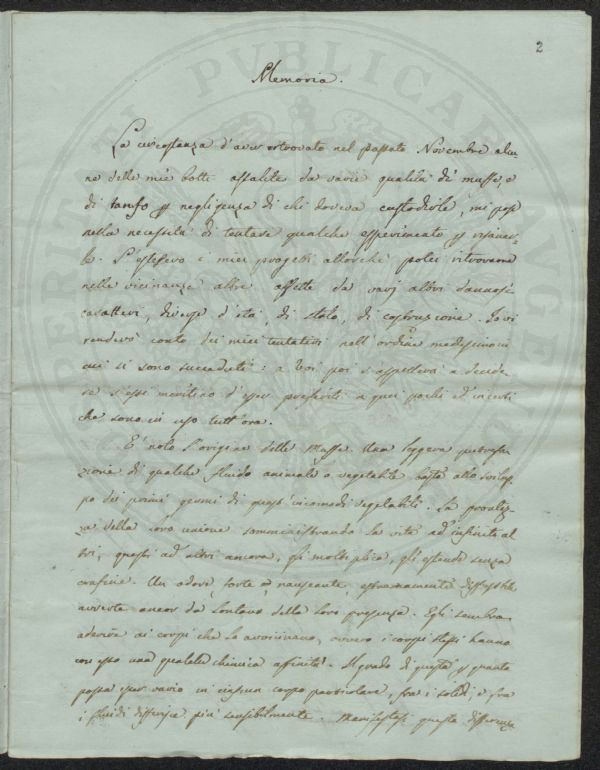 2
Memoria.
La circostanza d'aver ritrovato nel passato Novembre alcu-
ne delle mie botti assalite da varie qualità de' muffe, e
di tanfo p negligenza di chi doveva custodirle, mi pose
nella necessità di tentare qualche esperimento p risanar-
le. S'estesero i miei progetti allorchè potei ritrovarne
nelle vicinanze altre affette da varj altri dannosi
caratteri, diverse d'età, di stato, di costruzione. Io vi
renderò conto dei miei tentativi nell'ordine medesimo in
cui si sono succeduti: a Voi poi s'aspetterà a decide-
re s'essi meritino d'esser preferiti a quei pochi ed incerti
che sono in uso tutt'ora.
E' nota l'origine delle Muffe. Una leggera putrefa-
zione di qualche fluido animale o vegetabile basta allo svilup-
po dei primi germi di questi incomodi vegetabili. La prontez-
za della loro unione somministrando la vita ad infiniti al-
tri, questi ad altri ancora, gli moltiplica, gli estende senza
confine. Un odore, forte e nauseante, estremamente
avverte ancor da lontano della loro presenza. Egli sembra
aderire ai corpi che lo avvicinano, ovvero i corpi stessi hanno
con esso una qualche chimica affinità. Il grado di questa p quanto
possa esser vario in ciascun corpo particolare, fra i solidi, e fra
i fluidi differisce più sensibilmente. Manifestasi questa differenza